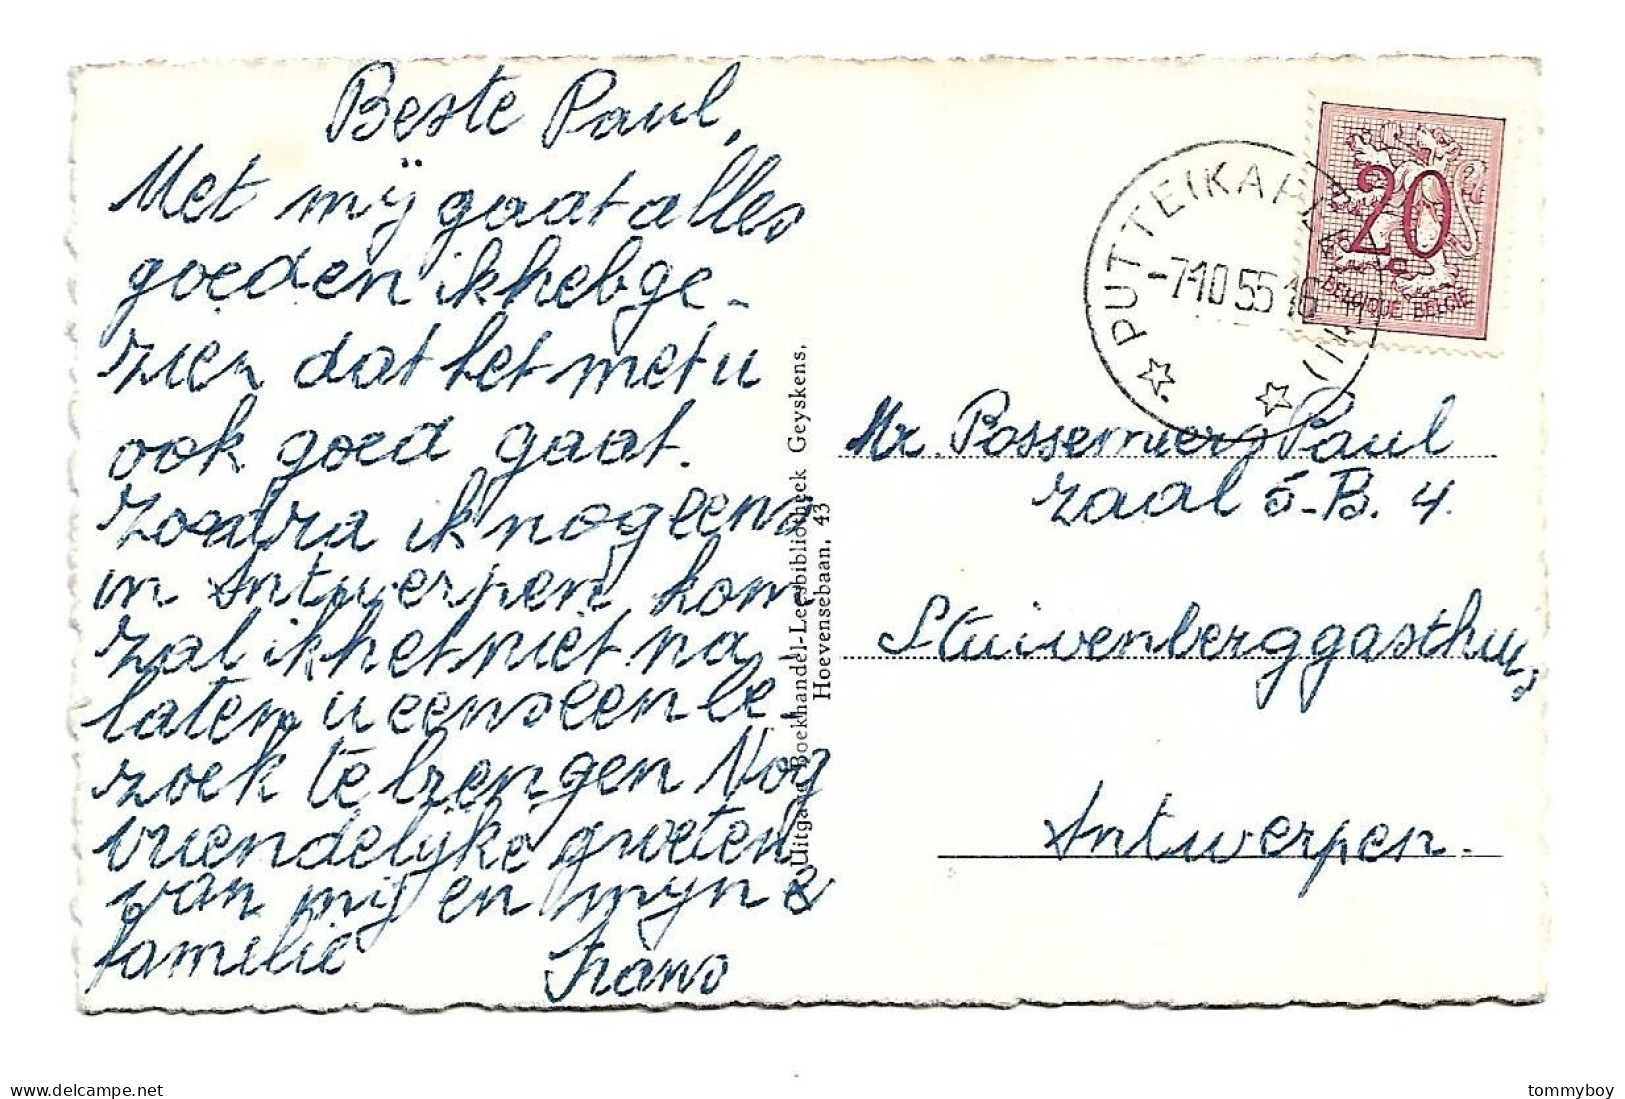 Beste Paul,
Met mij gaat alles
goed en ik heb ge-
zien dat het met u
ook goed gaat.
Zodra ik nog eens
in Antwerpen kom
zal ik het niet na-
laten u eens een be-
zoek te brengen Nog
vriendelijke groeten
van mij en mijn &
familie
Frans
Uitgave Boekhandel-Leesbibliotheek Geyskens,
Hoevensebaan, 43
PUTTE(KAPELLEN)
-7-10 55 16
20
BELGIQUE-BELGIE
Mr. Possemiers Paul
zaal 5-B. 4.
Stuivenberggasthuis
Antwerpen.
https://www.delcampe.net
tommyboy